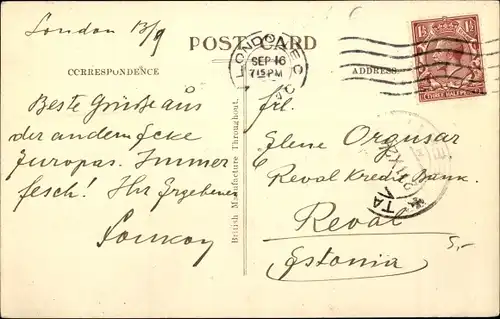 London 13/9
POST CARD
LONDON E.C
SEP 16
7.15 PM
1½ 1½
THREE HALFPENCE
CORRESPONDENCE
ADDRESS
Beste Grüße aus
der anderen Ecke
Europas. Immer
fesch! Ihr Ergebener
British Manufacture Throughout.
Frl.
Elene Orgusar
Reval Kredit Bank.
Reval
Estonia
5,-